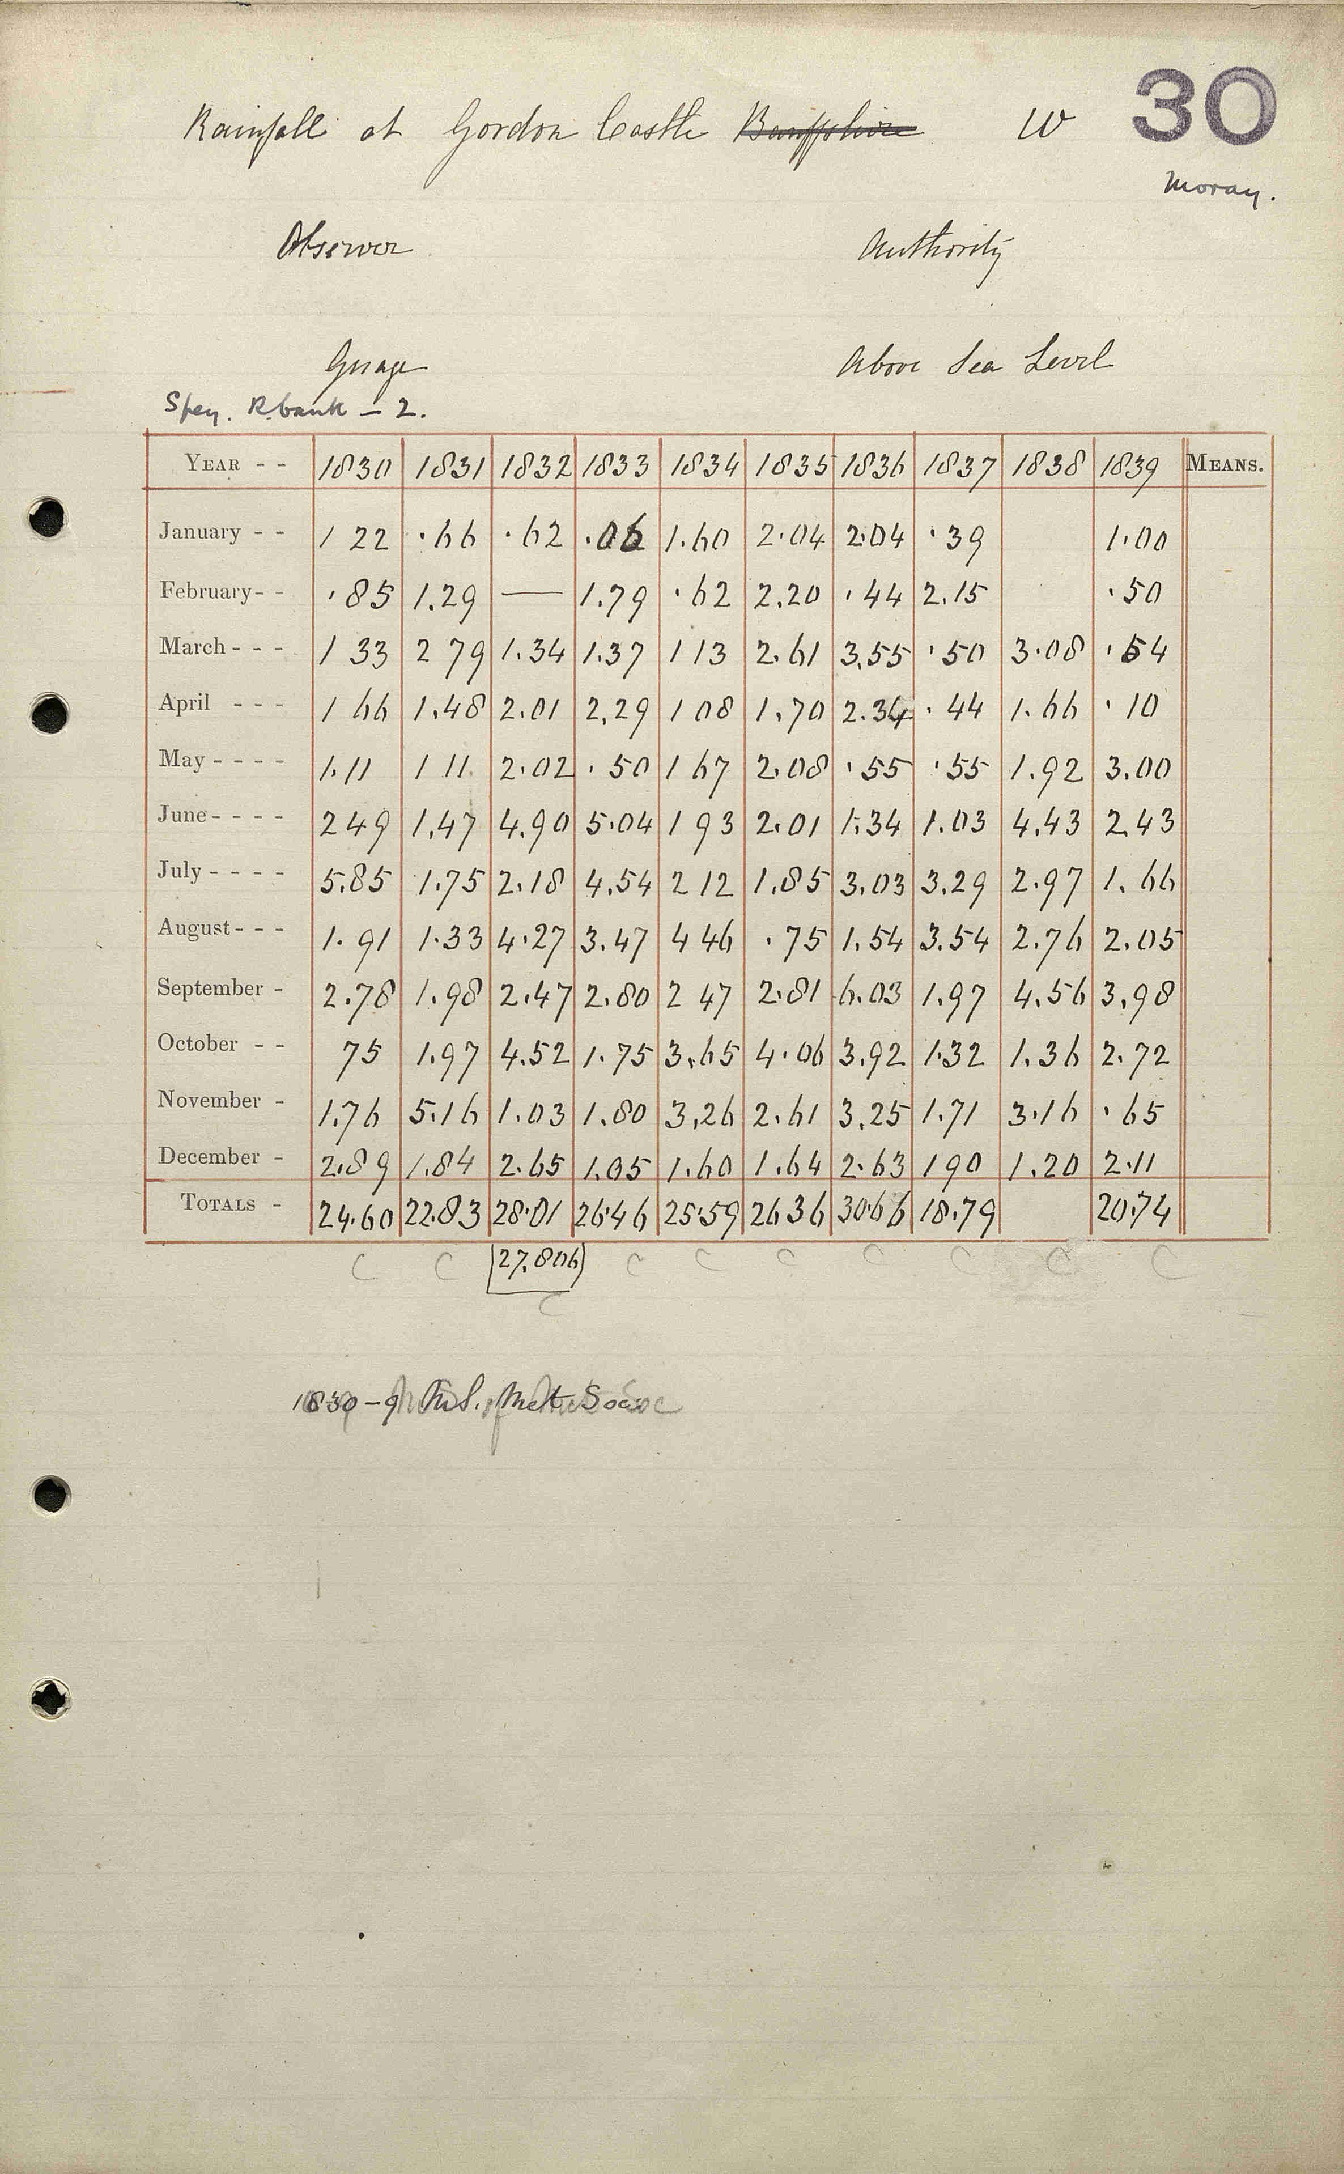 30
Rainfall at Gordon Castle Banffshire W
Moray.
Observer Authority
Guage Above Sea Level
Spey. R. bank - 2.
YEAR - - 1830 1831 1832 1833 1834 1835 1836 1837 1838 1839 MEANS.
January - - 1 22 .66 .62 .06 1.60 2.04 2.04 .39 1.00
February - - .85 1.29 — 1.79 .62 2.20 .44 2.15 .50
March - - - 1 33 2 79 1.34 1.37 1 13 2.61 3.55 .50 3.08 .54
April - - - 1 66 1.48 2.01 2.29 1 08 1.70 2.34 .44 1.66 .10
May - - - - 1.11 1 11 2.02 .50 1 67 2.08 .55 .55 1.92 3.00
June - - - - 2 49 1.47 4.90 5.04 1 93 2.01 1.34 1.03 4.43 2.43
July - - - - 5.85 1.75 2.18 4.54 2 12 1.85 3.03 3.29 2.97 1.66
August - - - 1.91 1.33 4.27 3.47 4 46 .75 1.54 3.54 2.76 2.05
September - 2.78 1.98 2.47 2.80 2 47 2.81 6.03 1.97 4.56 3.98
October - - 75 1.97 4.52 1.75 3.65 4.06 3.92 1.32 1.36 2.72
November - 1.76 5.16 1.03 1.80 3.26 2.61 3.25 1.71 3.16 .65
December - 2.89 1.84 2.65 1.05 1.60 1.64 2.63 1 90 1.20 2.11
TOTALS - 24.60 22.83 28.01 26.46 25.59 26 36 30.66 18.79 20.74
C C 27.806 C C C C C C C
C
1830-9 M.S. Met. Soc.